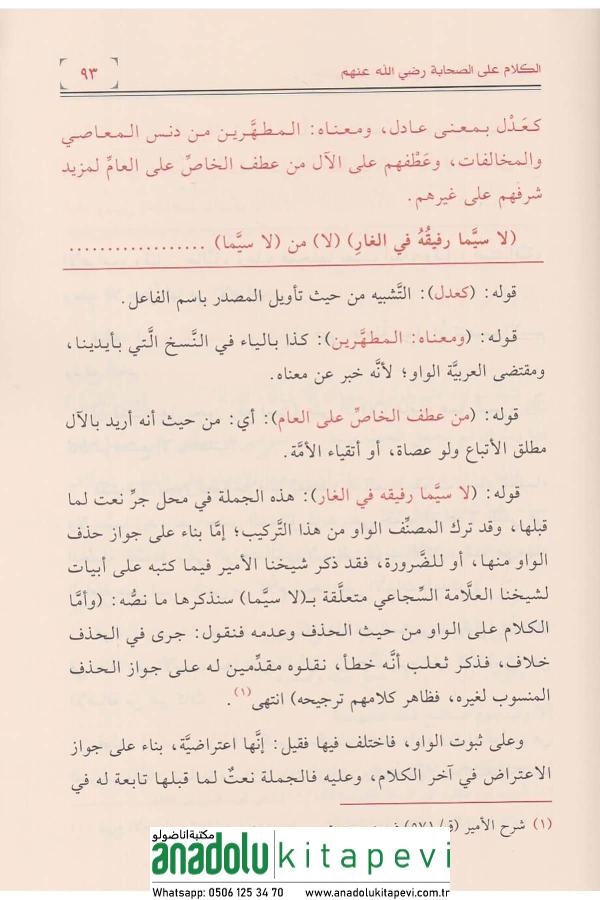 الكلام على الصحابة رضي الله عنهم
٩٣
كـعَـدْل بـمـعنى عـادل، ومـعناه: الـمـطهَّـرين مـن دنس الـمـعاصي
والمخالفات، وعَطْفهم على الآل من عطف الخاصِّ على العامِّ لمزيد
شرفهم على غيرهم.
(لا سيَّما رفيقُهُ في الغار) (لا) من (لا سيَّما) ..................
قوله: (كعدل): التَّشبيه من حيث تأويل المصدر باسم الفاعل.
قوله: (ومعناه: المطهَّرين): كذا بالياء في النَّسخ الَّتي بأيدينا،
ومقتضى العربيَّة الواو؛ لأنَّه خبر عن معناه.
قوله: (من عطف الخاصِّ على العام): أي: من حيث أنه أريد بالآل
مطلق الأتباع ولو عصاة، أو أتقياء الأمَّة.
قوله: (لا سيَّما رفيقه في الغار): هذه الجملة في محل جرِّ نعت لما
قبلها، وقد ترك المصنِّف الواو من هذا التَّركيب؛ إمَّا بناء على جواز حذف
الواو منها، أو للضَّرورة، فقد ذكر شيخنا الأمير فيما كتبه على أبيات
لشيخنا العلَّامة السِّجاعي متعلَّقة بـ(لا سيَّما) سنذكرها ما نصُّه: (وأمَّا
الكلام على الواو من حيث الحذف وعدمه فنقول: جرى في الحذف
خلاف، فذكر ثعلب أنَّه خطأ، نقلوه مقدِّمين له على جواز الحذف
المنسوب لغيره، فظاهر كلامهم ترجيحه) انتهى(١).
وعلى ثبوت الواو، فاختلف فيها فقيل: إنَّها اعتراضيَّة، بناء على جواز
الاعتراض في آخر الكلام، وعليه فالجملة نعتٌ لما قبلها تابعة له في
(١) شرح الأمير
مكتبة اناضولو
anadolu kitapevi
Whatsapp: 0506 125 34 70 www.anadolukitapevi.com.tr